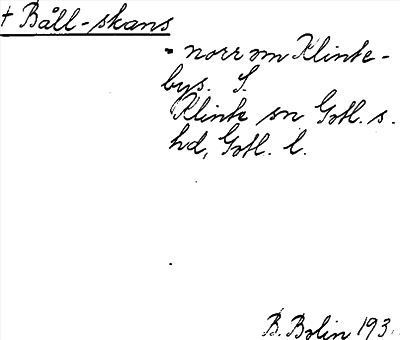 + Båll-skans
- norr om Klinte-
bys. S.
Klinte sn Gotl. s.
hd, Gotl. l.
B. Bolin 193.